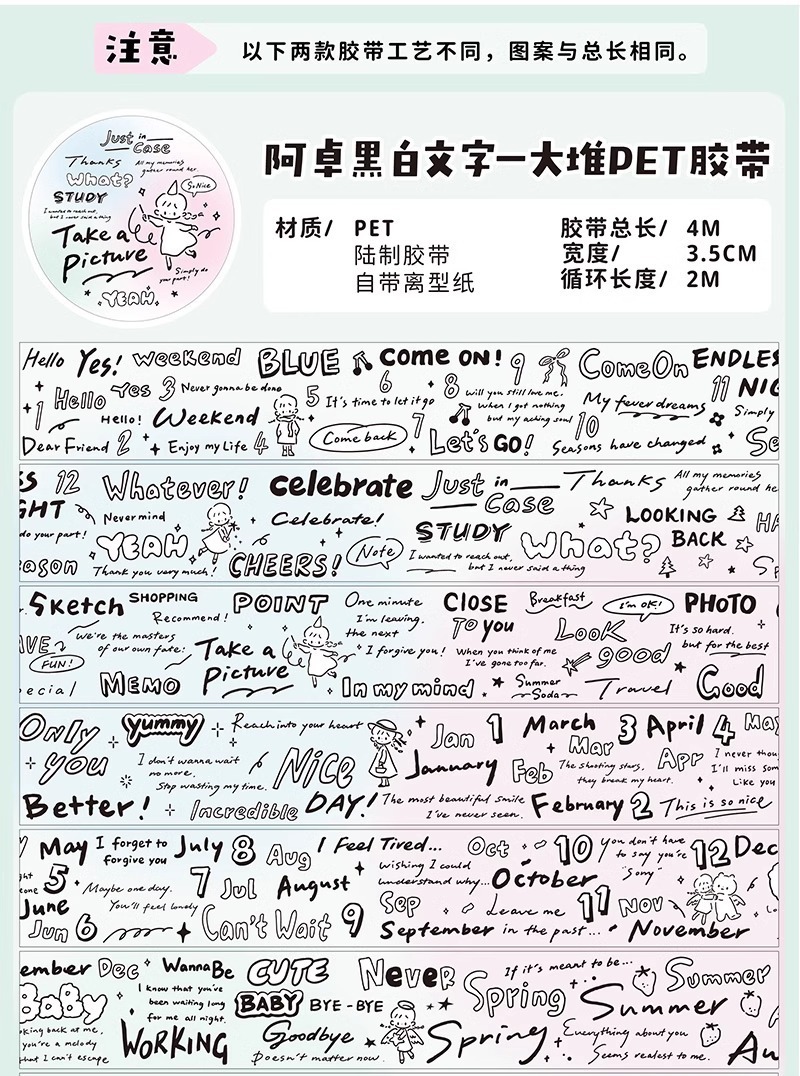 注意
以下两款胶带工艺不同，图案与总长相同。
Just in Case
Thanks
All my memories
gather round her
What?
So Nice
STUDY
I wanted to reach out,
but I never said a thing
Take a
Picture
Simply do
your part!
YEAH
阿卓黑白文字一大堆PET胶带
材质/ PET
陆制胶带
自带离型纸
胶带总长/ 4M
宽度/ 3.5CM
循环长度/ 2M
Hello Yes! Weekend BLUE Come ON! 9 Come On ENDLES
1 Hello Yes 3 Never gonna be done 5 It's time to let it go 6 8 Will you still love me, My fever dreams 11 NIG
Hello! Weekend Come back 7 When I got nothing 10 Simply
but my aching soul
Dear Friend 2 Enjoy my Life 4 Let's GO! Seasons have changed Se
SS 12 Whatever! celebrate Just in Case Thanks All my memories
gather round he
GHT Nevermind Celebrate! STUDY LOOKING
do your part! YEAH Note What? BACK HA
I wanted to reach out,
but I never said a thing
ason Thank you very much! CHEERS! Sp
Sketch SHOPPING POINT One minute CLOSE Breakfast I'm OK! PHOTO
Recommend! I'm leaving, To you LOOK It's so hard.
the next
AVE We're the masters Take a I forgive you! When you think of me good but for the best
of our own fate: I've gone too far.
FUN!
ecial MEMO Picture In my mind Summer Soda Travel Good
Only yummy Reach into your heart Jan 1 March 3 April 4 May
you I don't wanna wait Nice January Mar Apr I never thou
no more. Feb The shooting stars, I'll miss som
Stop wasting my time. they break my heart. Like you
Better! Incredible DAY! The most beautiful smile February 2 This is so nice
I've never seen.
y May I forget to July 8 Aug I Feel Tired... Oct 10 you don't have 12 Dec
forgive you to say you're
"Sorry"
5 Maybe one day. 7 Jul August Wishing I could October
understand why...
June You'll feel lonely Sep Leave me 11 Nov
Jun 6 Can't Wait 9 September in the past... November
ember Dec WannaBe CUTE Never If it's meant to be... Summer
BaBy I know that you've BABY BYE-BYE Spring Summer
been waiting long
for me all night.
king back at me, WORKING Goodbye Spring Everything about you Au
you're a melody
that I can't escape Doesn't matter now. Seems realest to me.